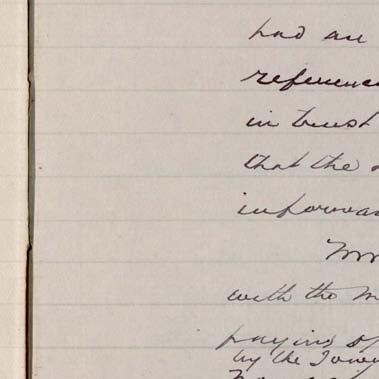 had an
reference
in trust
that the
with the M
paying of
by the Town